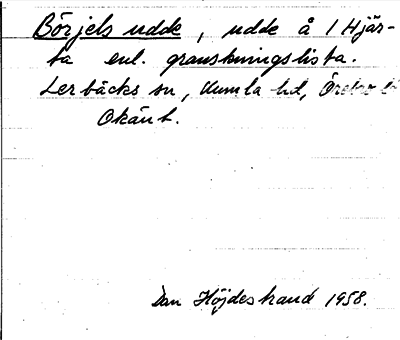 Börjels udde, udde å 1 Hjär-
ta enl. granskningslista.
Lerbäcks sn, Kumla hd, Örebro l
Okänt.
Dan Höjdestrand 1958.